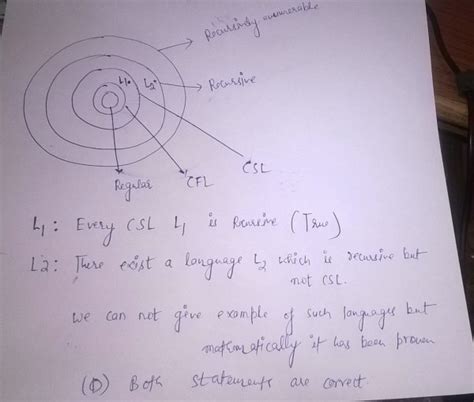 Recursively enumerable
L1. L2.
Recursive
CSL
Regular CFL
L1: Every CSL L1 is Recursive (True)
L2: There exist a language L2 which is recursive but
not CSL.
we can not give example of such languages but
mathematically it has been proven
(D) Both statements are correct.